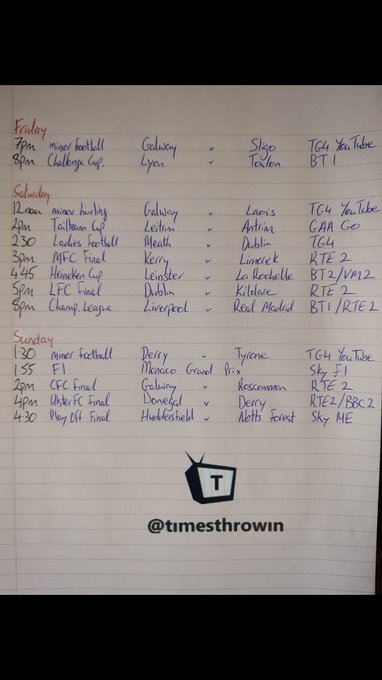 Friday
7pm minor football Galway v Sligo TG4 YouTube
8pm Challenge Cup. Lyon v Toulon BT1
Saturday
12noon minor hurling Galway v Laois TG4 YouTube
2pm Tailteann Cup Leitrim v Antrim GAA GO
2:30 Ladies Football Meath v Dublin TG4
3pm MFC Final Kerry v Limerick RTE 2
4:45 Heineken Cup Leinster v La Rochelle BT2/VM2
5pm LFC Final Dublin v Kildare RTE 2
8pm Champ. League Liverpool v Real Madrid BT1/RTE2
Sunday
1:30 minor football Derry v Tyrone TG4 YouTube
1:55 F1 Monaco Grand Prix Sky F1
2pm CFC Final Galway v Roscommon RTE 2
4pm Ulster FC Final Donegal v Derry RTE2/BBC2
4:30 Play Off Final Huddersfield v Notts. Forest Sky ME
T
@tımesthrowın